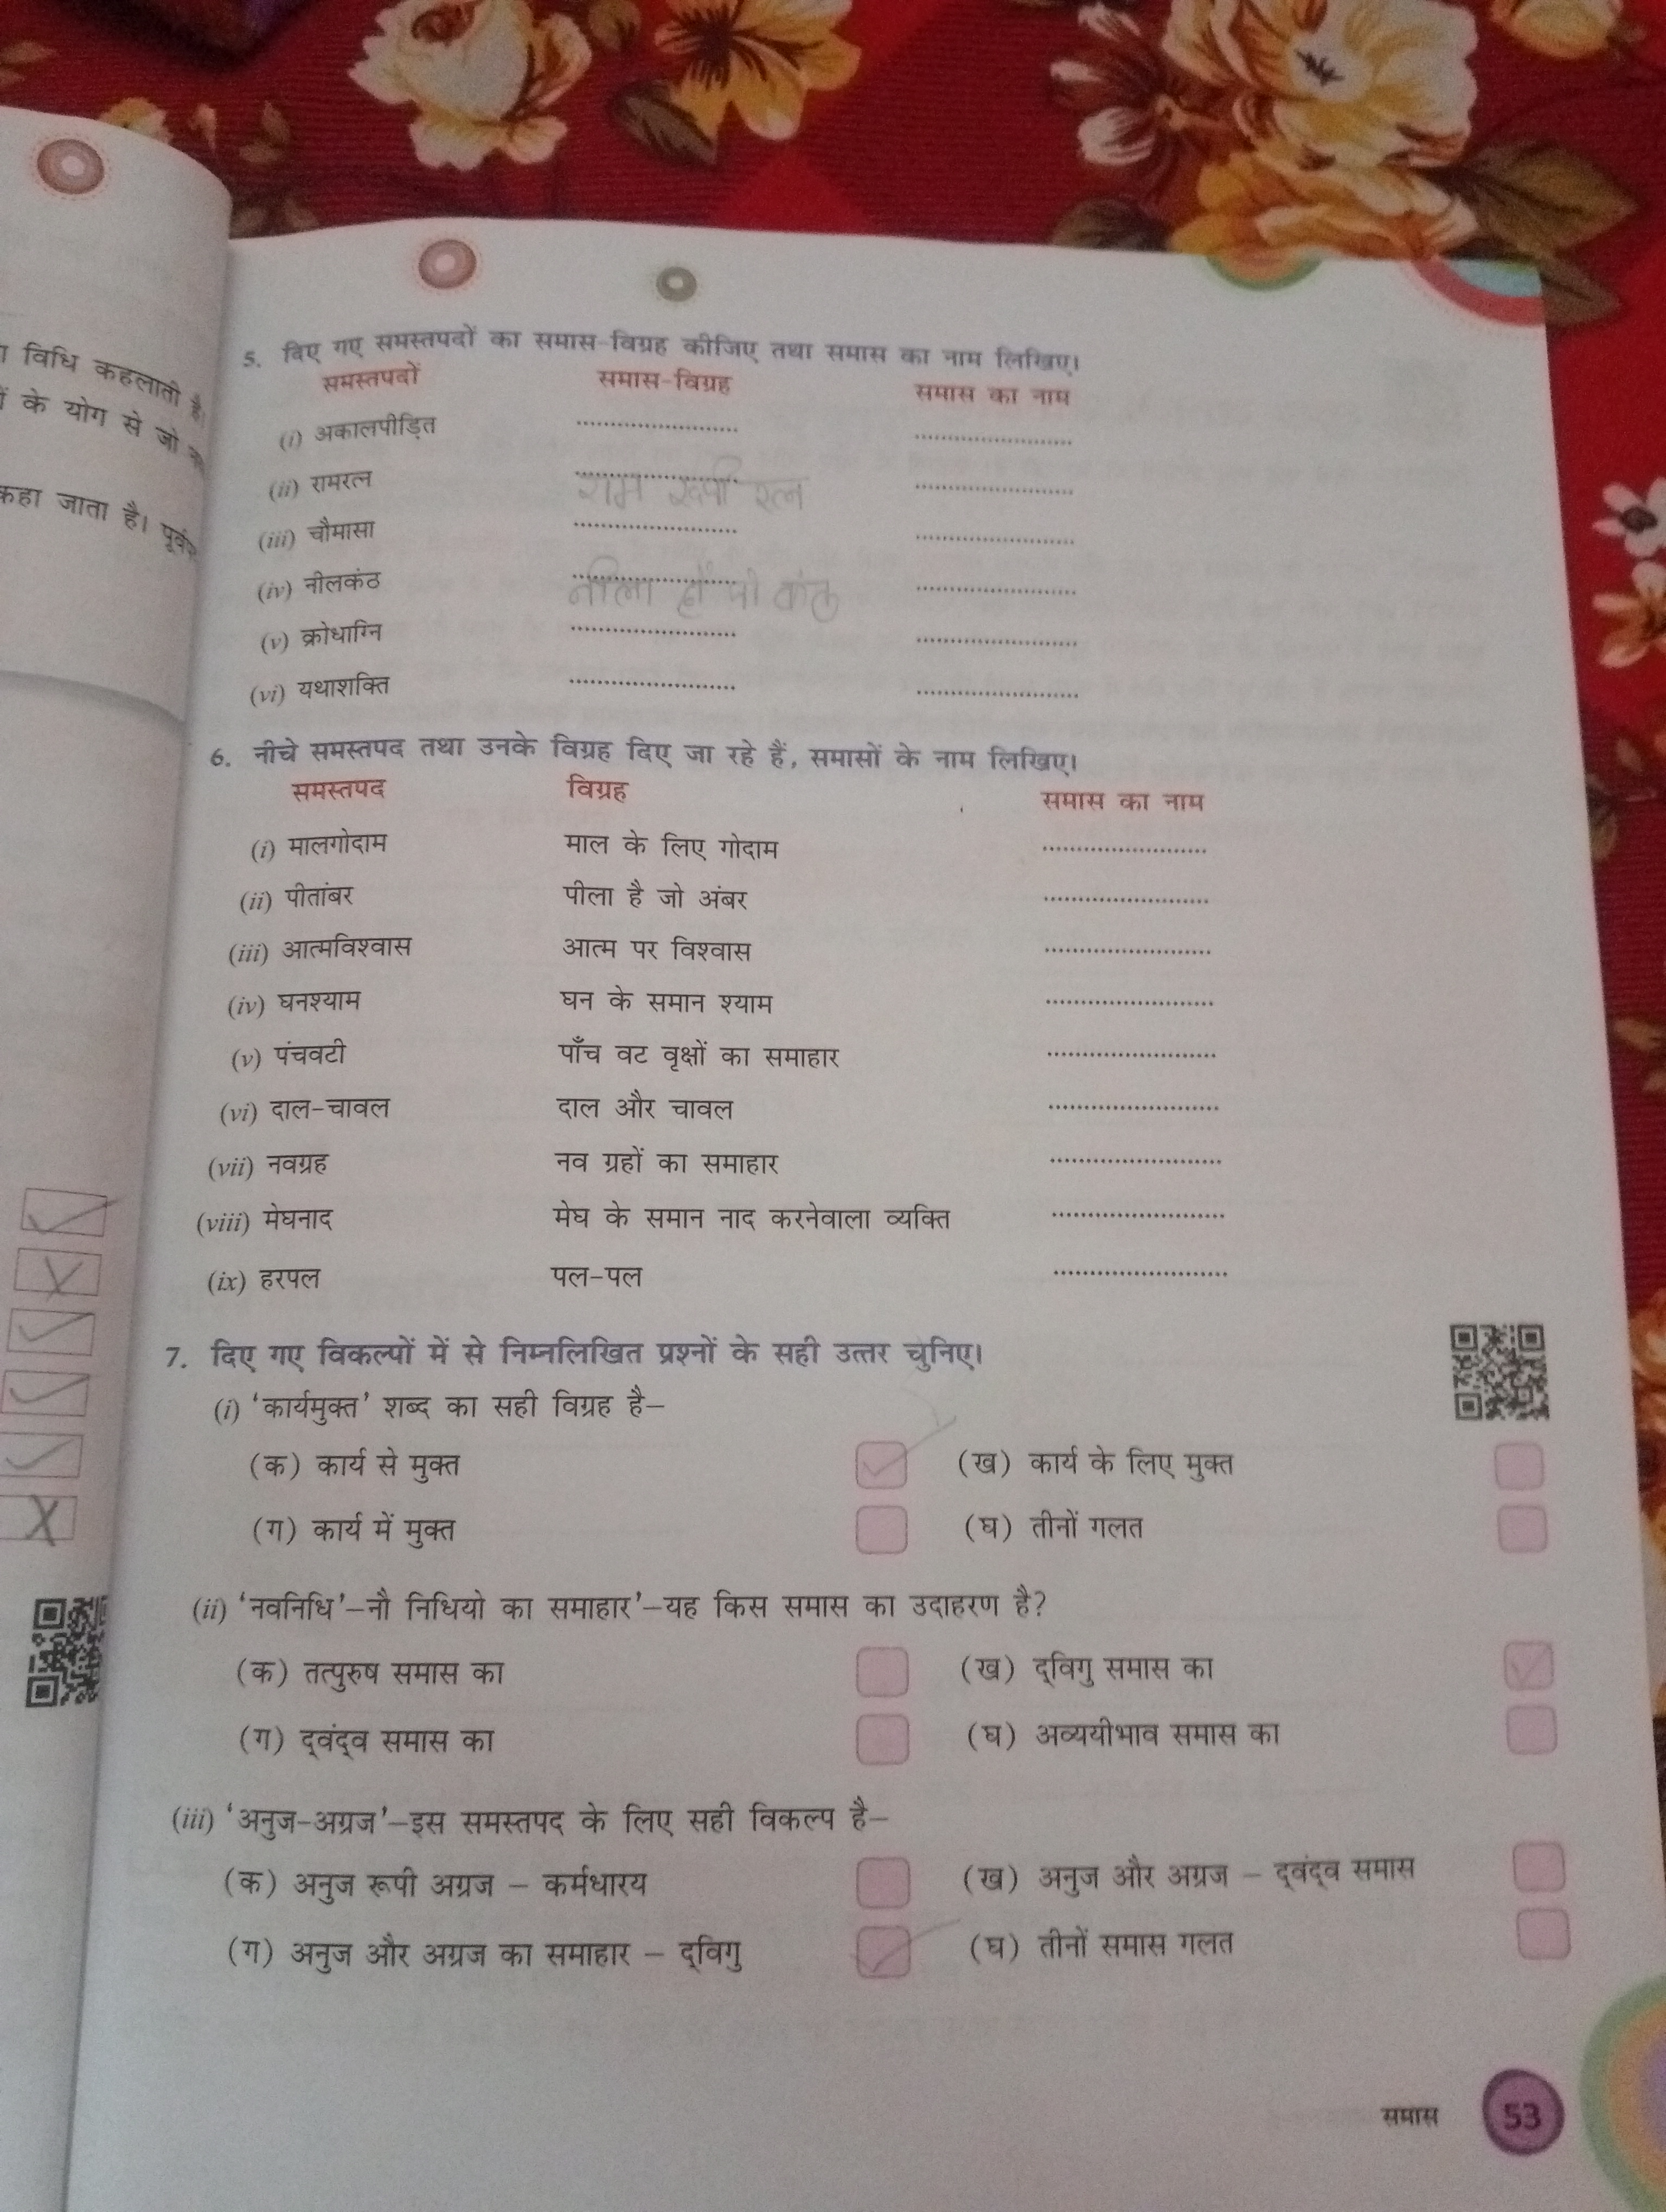 विधि कहलाती है।
के योग से जो
कहा जाता है।
5. दिए गए समस्तपदों का समास-विग्रह कीजिए तथा समास का नाम लिखिए।
समस्तपदों समास-विग्रह समास का नाम
(i) अकालपीड़ित
(ii) रामरत्न राम रूपी रत्न
(iii) चौमासा
(iv) नीलकंठ नीला है जो कंठ
(v) क्रोधाग्नि
(vi) यथाशक्ति
6. नीचे समस्तपद तथा उनके विग्रह दिए जा रहे हैं, समासों के नाम लिखिए।
समस्तपद विग्रह समास का नाम
(i) मालगोदाम माल के लिए गोदाम
(ii) पीतांबर पीला है जो अंबर
(iii) आत्मविश्वास आत्म पर विश्वास
(iv) घनश्याम घन के समान श्याम
(v) पंचवटी पाँच वट वृक्षों का समाहार
(vi) दाल-चावल दाल और चावल
(vii) नवग्रह नव ग्रहों का समाहार
(viii) मेघनाद मेघ के समान नाद करनेवाला व्यक्ति
(ix) हरपल पल-पल
7. दिए गए विकल्पों में से निम्नलिखित प्रश्नों के सही उत्तर चुनिए।
(i) ‘कार्यमुक्त’ शब्द का सही विग्रह है–
(क) कार्य से मुक्त (ख) कार्य के लिए मुक्त
(ग) कार्य में मुक्त (घ) तीनों गलत
(ii) ‘नवनिधि’–नौ निधियो का समाहार’–यह किस समास का उदाहरण है?
(क) तत्पुरुष समास का (ख) द्‌विगु समास का
(ग) द्‌वंद्‌व समास का (घ) अव्ययीभाव समास का
(iii) ‘अनुज-अग्रज’–इस समस्तपद के लिए सही विकल्प है–
(क) अनुज रूपी अग्रज – कर्मधारय (ख) अनुज और अग्रज – द्‌वंद्‌व समास
(ग) अनुज और अग्रज का समाहार – द्‌विगु (घ) तीनों समास गलत
समास 53